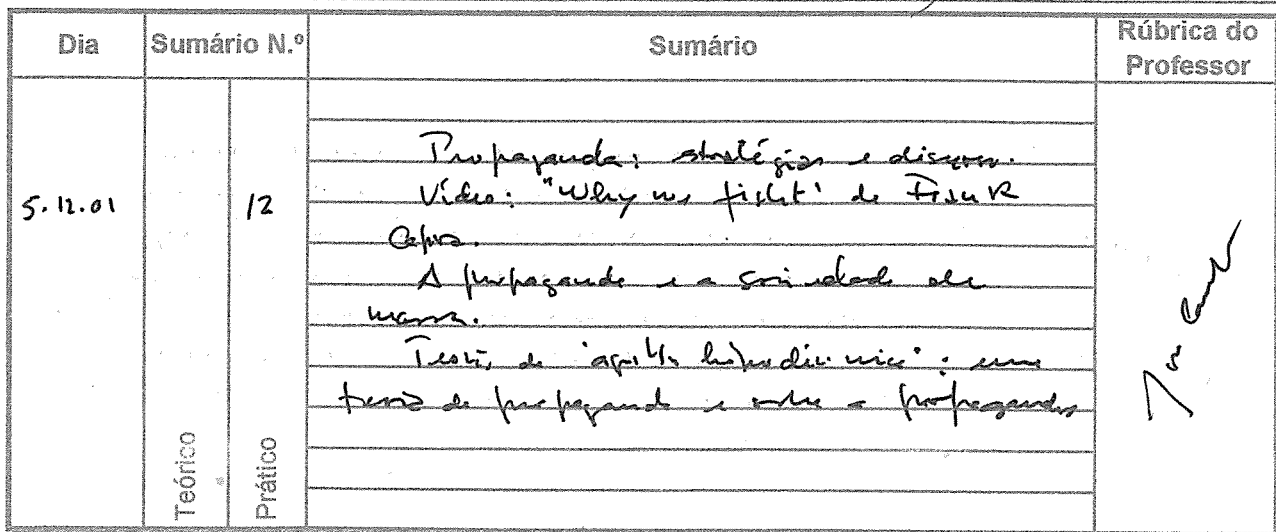 Dia
Sumário N.º
Sumário
Rúbrica do
Professor
Propaganda: estratégias e discursos.
5.12.01
12
Vídeo: "Why we fight" de Frank
Capra.
A propaganda e a sociedade de
massa.
Teoria da "agulha hipodérmica": uma
teoria de propaganda e sobre a propaganda
Teórico
Prático